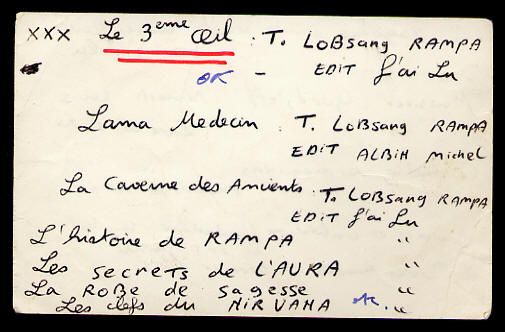 xxx Le 3eme œil : T. LOBSANG RAMPA
OK - EDIT J'ai Lu
Lama Medecin : T. LOBSANG RAMPA
EDIT ALBIN Michel
La Caverne des Ancients : T. LOBSANG RAMPA
EDIT J'ai Lu
L'histoire de RAMPA "
Les secrets de L'AURA "
La ROBE de sagesse "
Les clefs du NIRVANA OK. "